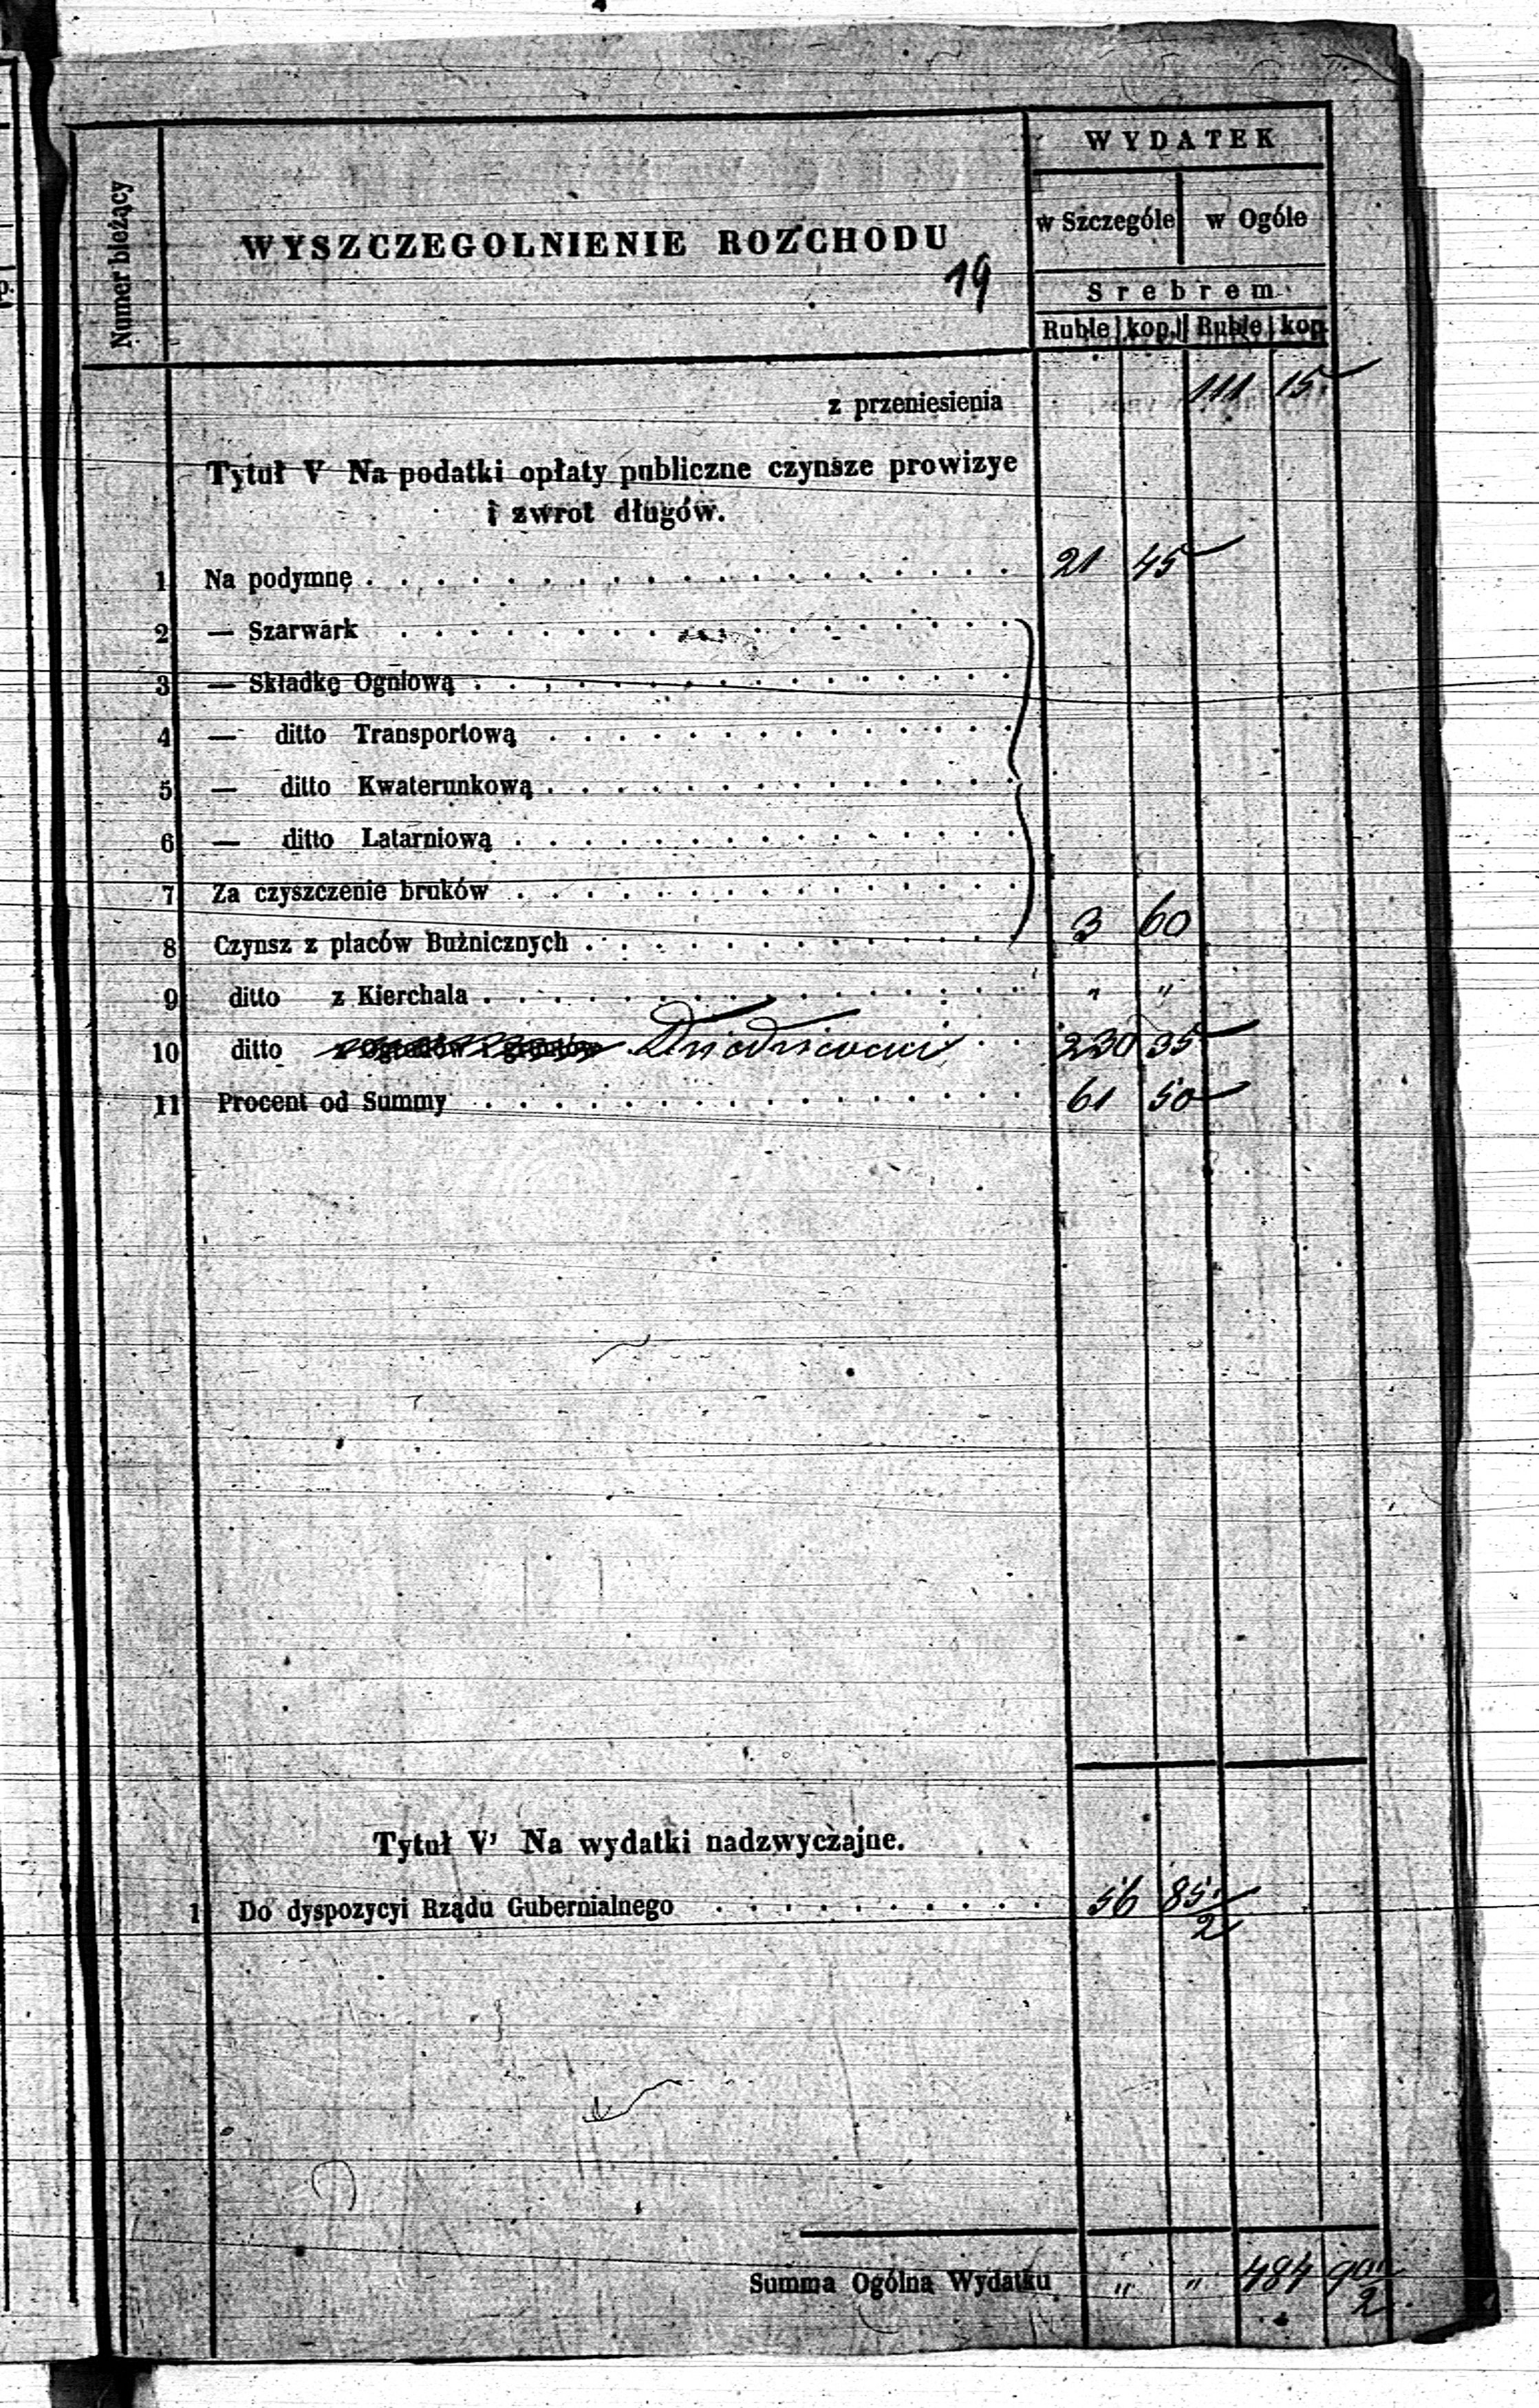 Numer bieżący
WYSZCZEGOLNIENIE ROZCHODU
19
WYDATEK
w Szczególe w Ogóle
Srebrem
Ruble kop. Ruble kop.
z przeniesienia 111 15
Tytuł V Na podatki opłaty publiczne czynsze prowizye
i zwrot długów.
1 Na podymnę . . . 21 45
2 — Szarwark . . .
3 — Składkę Ogniową . . .
4 — ditto Transportową . . .
5 — ditto Kwaterunkową . . .
6 — ditto Latarniową . . .
7 Za czyszczenie bruków . . .
8 Czynsz z placów Bużnicznych . . . 3 60
9 ditto z Kierchala . . . " "
10 ditto z Ogrodów i gruntów . . . 230 35
11 Procent od Summy . . . 61 50
Tytuł V' Na wydatki nadzwyczajne.
1 Do dyspozycyi Rządu Gubernialnego . . . 56 85 1/2
Summa Ogólna Wydatku " " 484 90 1/2